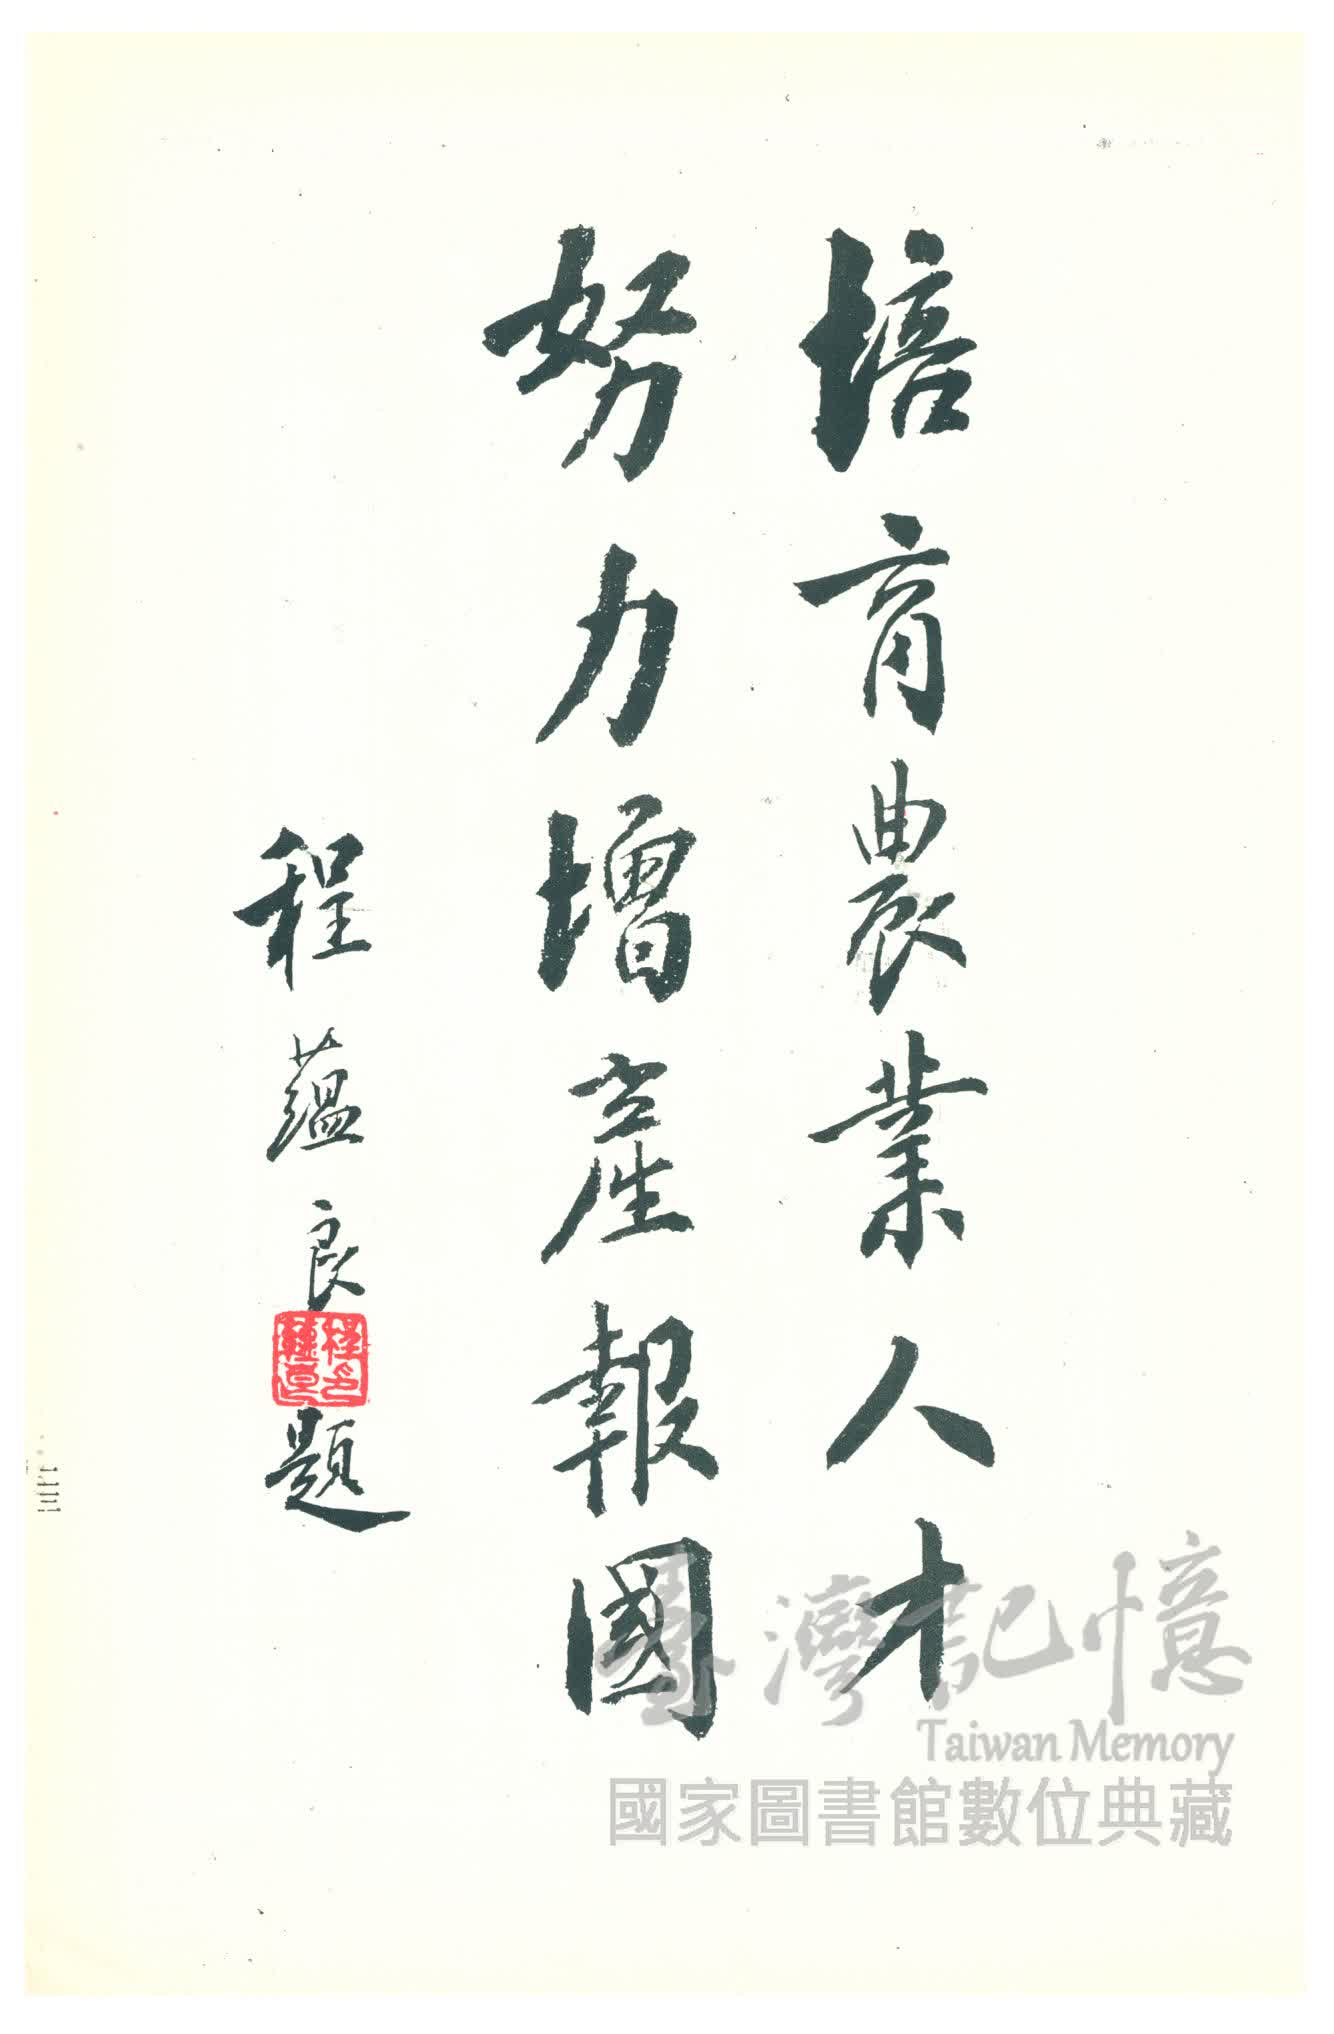 培育農業人才
努力增產報國
程蘊良題
臺灣記憶
Taiwan Memory
國家圖書館數位典藏